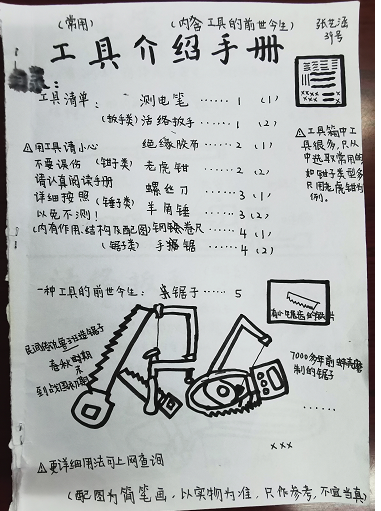 (常用)
(内含工具的前世今生)
张艺涵
39号
工具介绍手册
工具清单：
测电笔 …… 1 (1)
(扳手类)活络扳手 …… 1 (2)
△用工具请小心
不要误伤
请认真阅读手册
详细按照
以免不测！
(内有作用、结构及配图)
绝缘胶布 …… 2 (1)
(钳子类) 老虎钳 …… 2 (2)
螺丝刀 …… 3 (1)
(锤子类) 羊角锤 …… 3 (2)
钢卷尺 …… 4 (1)
(锯子类) 手锯 …… 4 (2)
△工具箱中工
具很多，只从
中选取常用的
如钳子类型多
只用老虎钳为
例。
一种工具的前世今生：
锯子 …… 5
民间传说鲁班造锯子
春秋时期
到战国初期
7000多年前
制的锯子
……
×××
△更详细用法可上网查询
(配图为简笔画，以实物为准，只作参考，不宜当真)